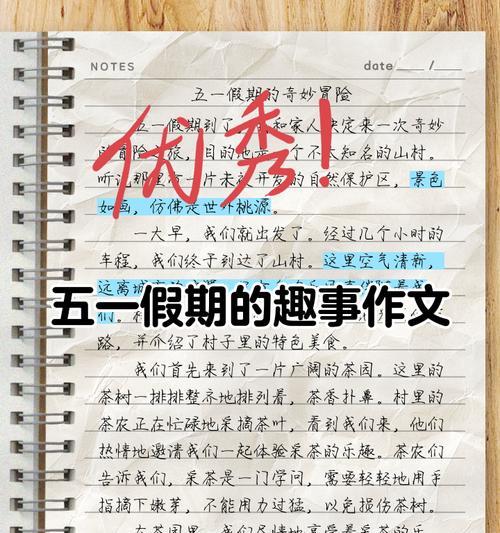 NOTES
date ____ / ____
五一假期的奇妙冒险
优秀！
五一假期到了，和家人决定来一次奇妙
冒险之旅，目的地是一个不人知名的山村。
听说那里有一片未被开发的自然保护区，景色
如画，仿佛是世外桃源。
一大早，我们就出发了。经过几个小时的
车程，我们终于到达了山村。这里空气清新，
远离城
五一假期的趣事作文
们。
路，并介绍了村子里的特色美食。
我们首先来到了一片广阔的茶园。这里的
茶树一排排整齐地排列着，茶香扑鼻。村里的
茶农正在忙碌地采摘茶叶，看到我们来，他们
热情地邀请我们一起体验采茶的乐趣。茶农们
告诉我们，采茶是一门学问，需要轻轻地用手
指摘下嫩芽，不能用力过猛，以免损伤茶树。
在茶园里，我们尽情地享受着采茶的乐